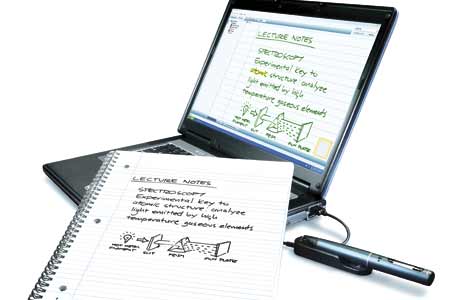 LECTURE NOTES
SPECTROSCOPY
Experimental key to
atomic structure analyze
light emitted by high
temperature gaseous elements
SLIT
PRISM
FILM PLATE
LECTURE NOTES
SPECTROSCOPY
Experimental key to
atomic structure analyze
light emitted by high
temperature gaseous elements
HOT METAL
FILAMENT
SLIT
PRISM
FILM PLATE